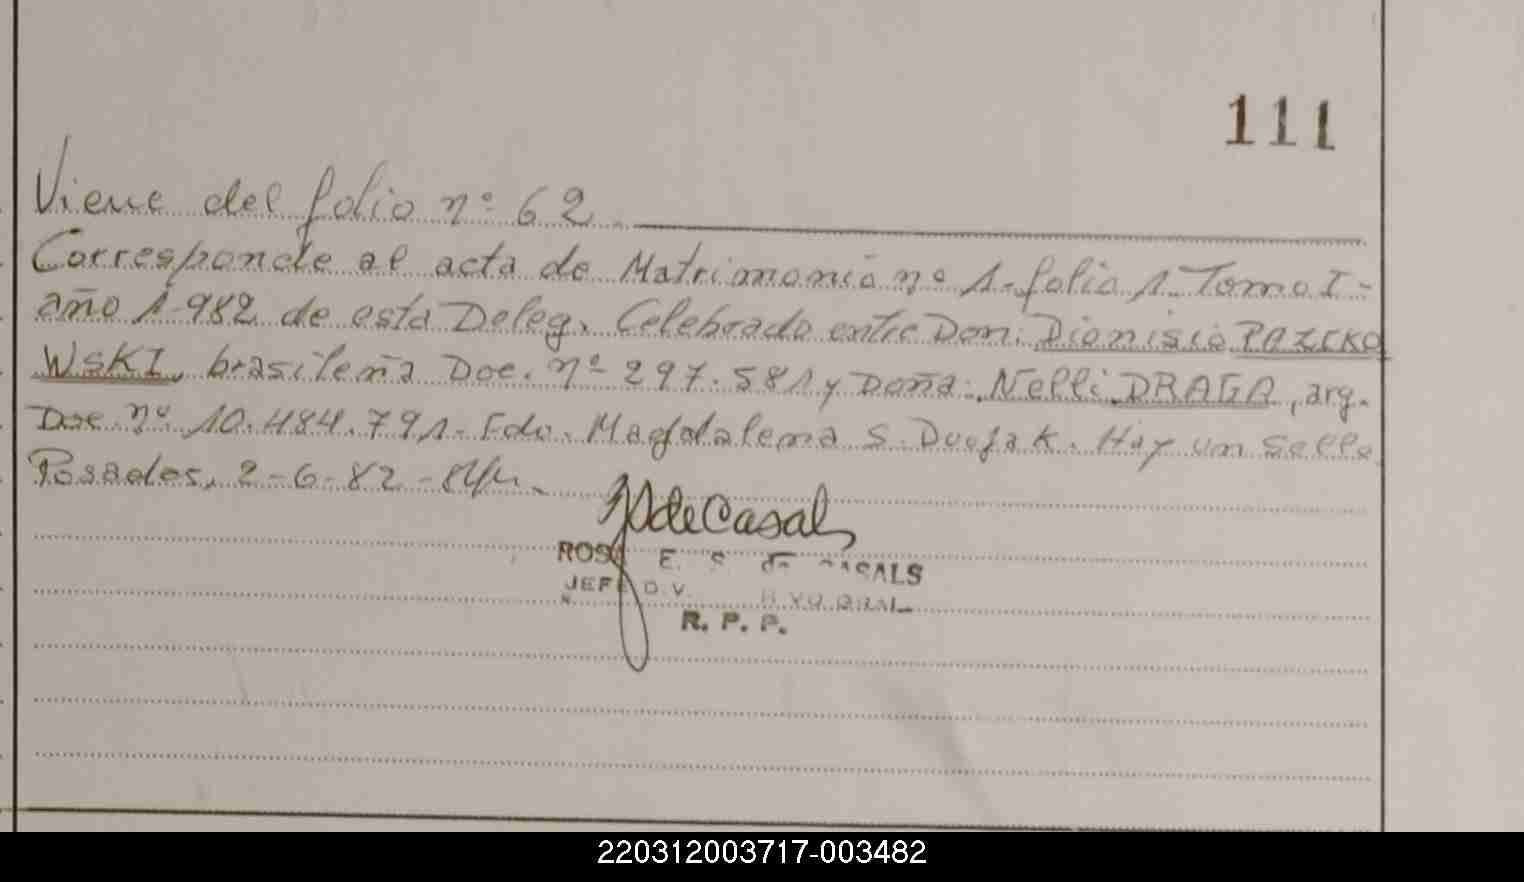 111
Viene del folio nº 62
Corresponde al acta de Matrimonio nº 1-folio 1-Tomo I-
año 1.982 de esta Deleg. Celebrado entre Don: Dionisio PAZCKO
WSKI, brasileña Doc. nº 297.581 y Doña: Nelli DRAGA, arg.
Doc. nº 10.484.791- Fdo. Magdalena S. Duojak. Hay un sello
Posadas, 2-6-82-
de Casals
ROSA E. S. de CASALS
JEFE
R. P. P.
220312003717-003482